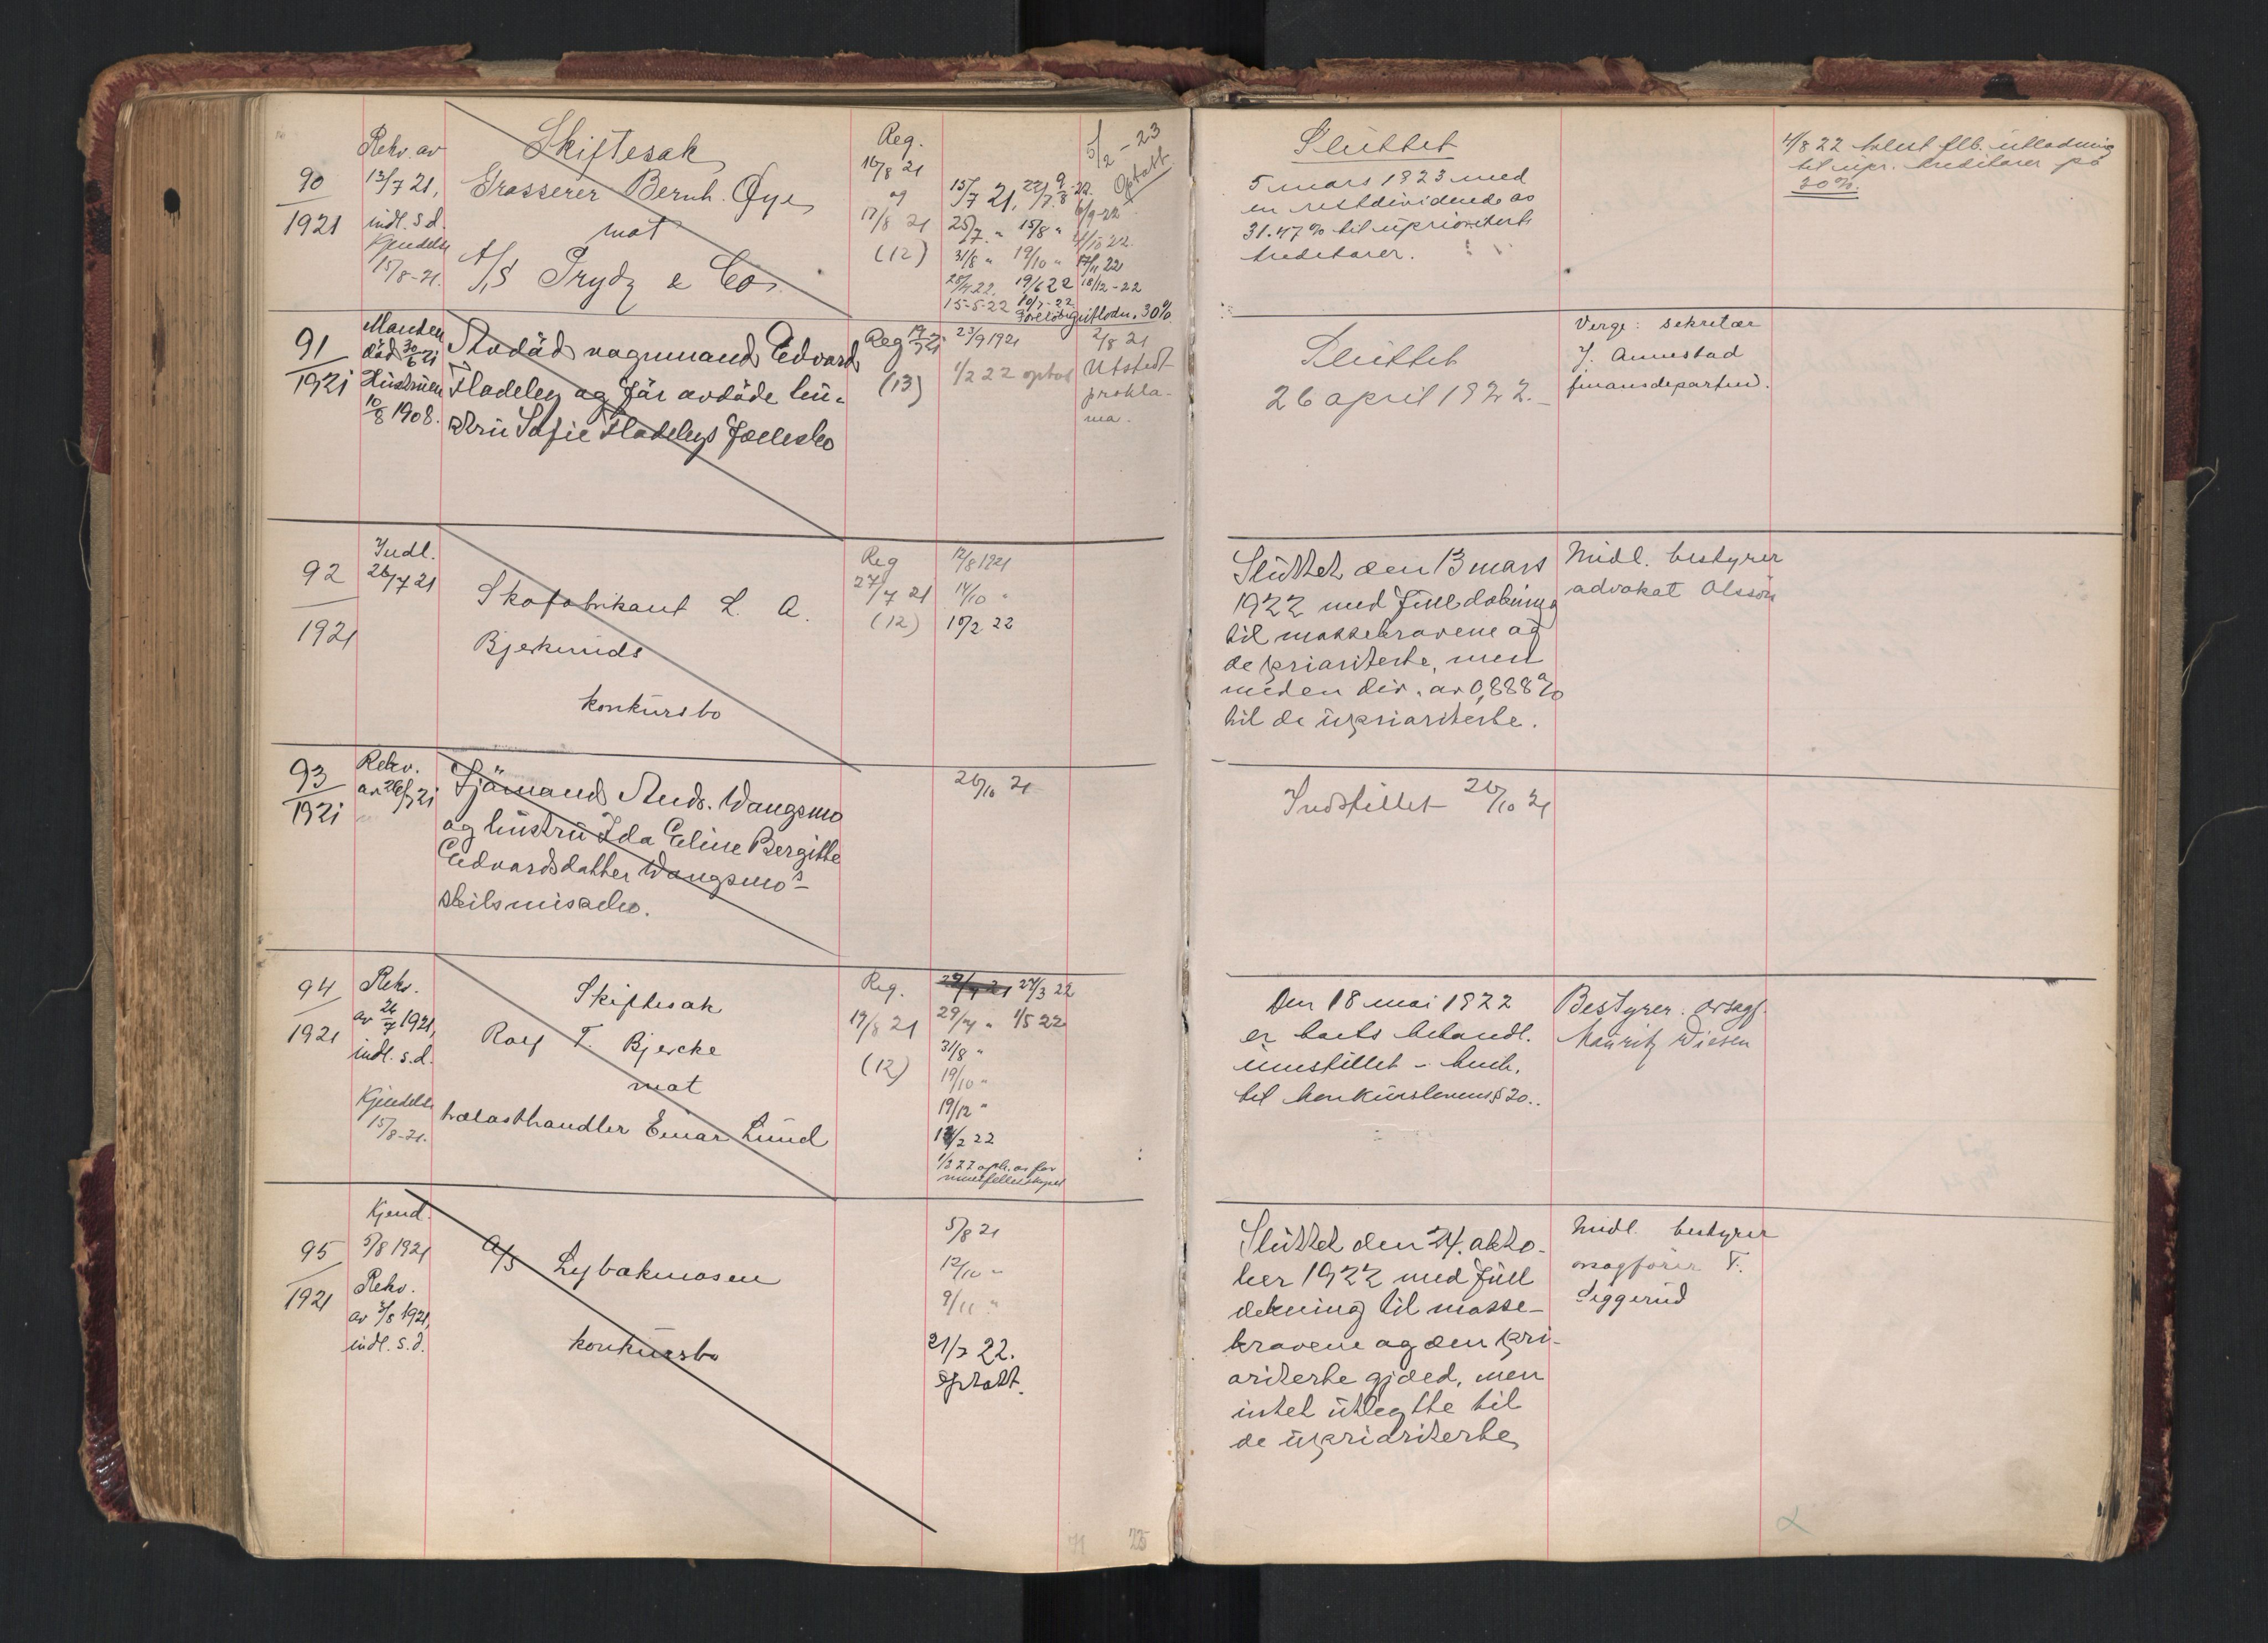 90
1921
Rekv. av
13/7 21,
indl. s.d.
Kjendelse
15/8-21.
Skiftesak
Grosserer Bernh. Øye
mot
A/S Prydz & Co.
Reg.
16/8 21
og
17/8 21
(12)
15/7 21, 22/7.
25/7. " 15/8 "
31/8 " 19/10 "
15-5-22
6/9-22
17/11 22
18/12-22
5/2-23
Optatt
30%
Sluttet
5 mars 1923 med
en restdividende av
31.47% til uprioriterte
kreditorer.
til upr. kreditorer på
30%.
91
1921
Manden
död 30/6 21
Hustruen
10/8 1908.
Avdöd vognmand Edvard
Fladeby og för avdöde hu-
stru Sofie Fladebys Fællesbo
Reg 19/7 21
(13)
23/9 1921
1/2 22 optat
2/8 21
Utstedt
prokla-
ma.
Sluttet
26 april 1922.-
Verge: sekretær
J. Aunestad
finansdepartem.
92
1921
Indl.
26/7 21
Skofabrikant L. A.
Bjerkunds
konkursbo
Reg
27/7 21
(12)
12/8 1921
14/10 "
10/2 22
Sluttet den 13 mars
1922 med full dekning
til massekravene og
de prioriterte, med
uden div. av 0,888%
til de uprioriterte.
Midl. bestyrer
advokat Olssön
93
1921
Rekv.
av 26/7 21
Sjömand Andr. Wangsmo
og hustru Ida Eline Bergitte
Edvardsdatter Wangsmo's
skilsmissebo.
26/10 21
Indstillet 26/10 21
94
1921
Rekv.
av 26/7 1921,
indl. s.d.
Kjendelse
15/8-21.
Skiftesak
Rolf T. Bjercke
mot
trælasthandler Einar Lund
Reg.
19/8 21
(12)
29/7 21 27/3 22
29/7 " 1/5 22
31/8 "
19/10 "
19/12 "
13/2 22
Den 18 mai 1922
er boets behandl.
innstillet - henh.
til konkurslovens § 20..
Bestyrer: orsagf.
Mauritz Diesen
95
1921
Kjend.
5/8 1921
Rekv.
av 3/8 1921,
indl. s.d.
A/S Lybakmosen
konkursbo
5/8 21
12/10 "
9/11 "
21/7 22.
Optatt.
Sluttet den 24. okto-
ber 1922 med full
dekning til masse-
kravene og den pri-
oriterte gjæld, men
intet utlegtte til
de uprioriterte
Midl. bestyrer
orsagförer T.
Seggerud